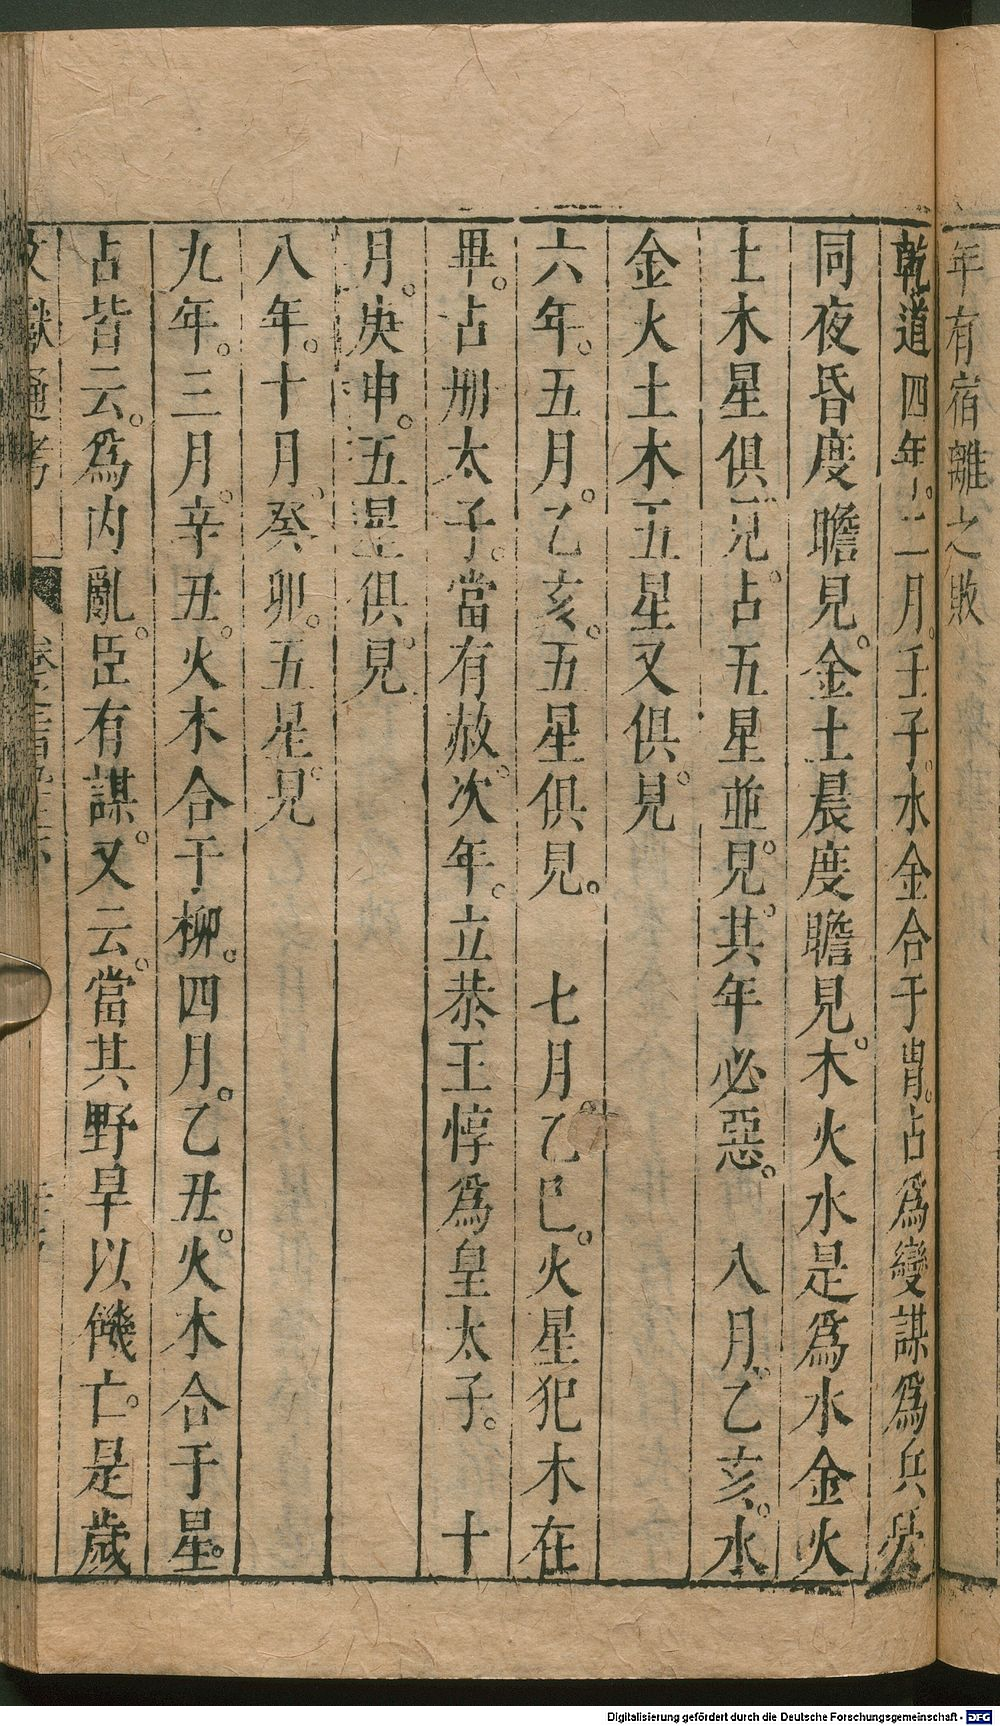 年有宿離之敗
乾道四年。二月。壬子。水金合于胃。占爲變謀爲兵憂
同夜昏度瞻見。金土晨度瞻見。木火水是爲水金火
土木星俱見。占五星並見。其年必惡。 八月。乙亥。水
金火土木五星又俱見
六年。五月。乙亥。五星俱見。 七月。乙巳。火星犯木在
畢。占册太子。當有赦。次年。立恭王惇爲皇太子。 十
月。庚申。五星俱見
八年。十月。癸卯。五星見
九年。三月。辛丑。火木合于柳。四月。乙丑。火木合于星。
占皆云。爲内亂。臣有謀。又云。當其野旱以饑亡。是歲
文獻通考
Digitalisierung gefördert durch die Deutsche Forschungsgemeinschaft - DFG